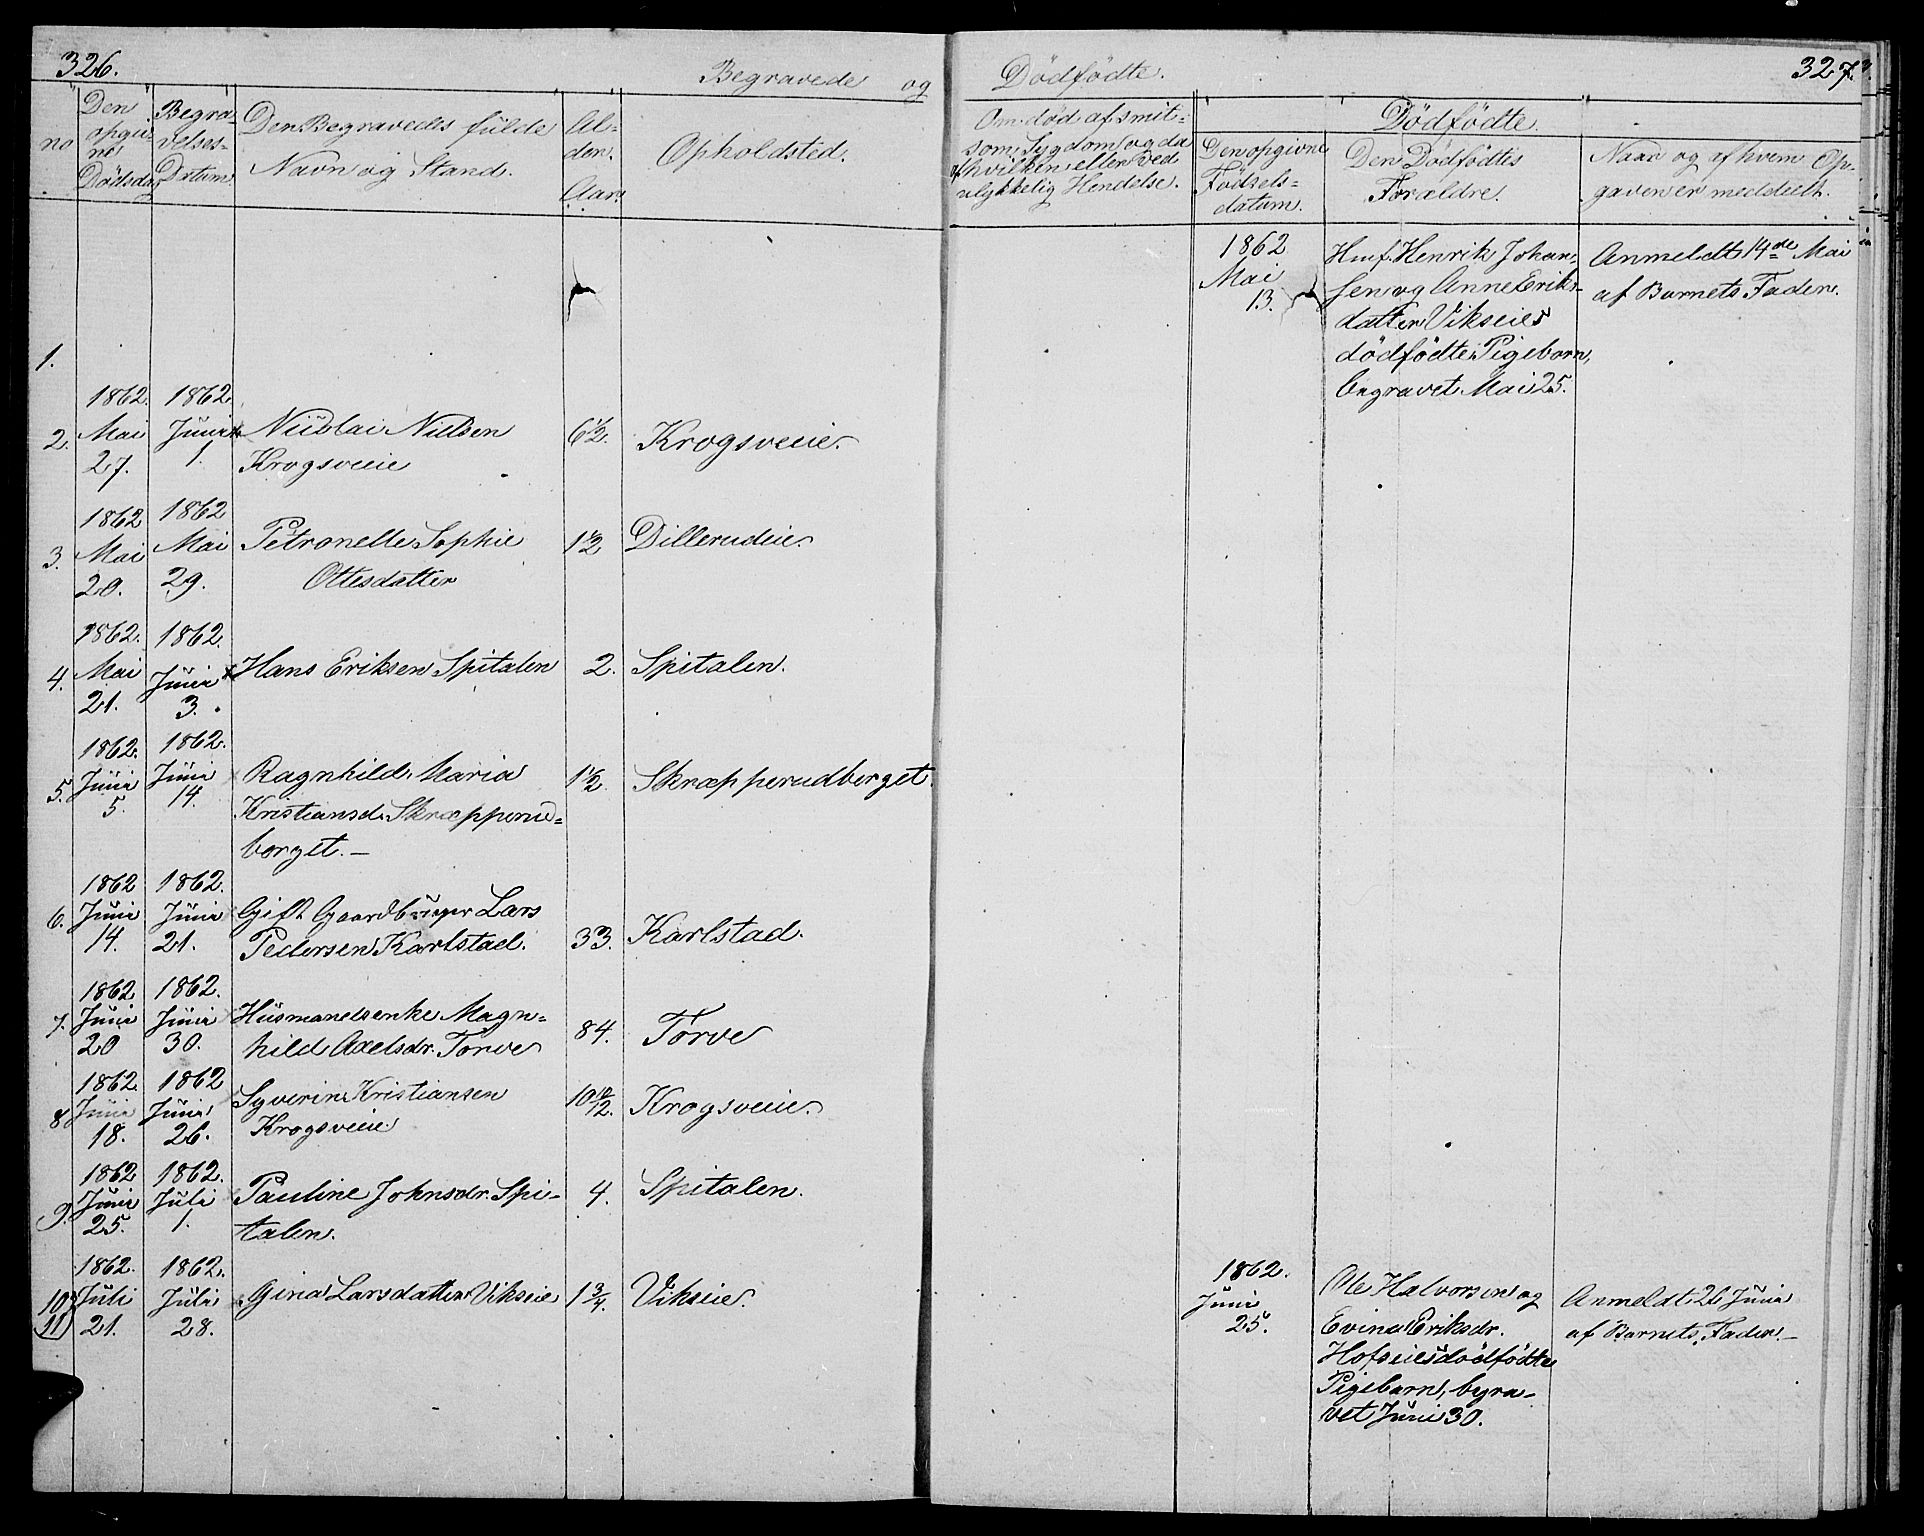 326.
Begravede og
no
Den opgivne Dødsdag
Begravelses-Datum.
Den Begravedes fulde
Navn og Stand.
Al-
der.
Aar.
Opholdsted.
1.
2.
1862.
Mai
27.
1862.
Juni
1.
Nicolai Nielsen
Krogsveie
6½.
Krogsveie.
3.
1862
Mai
20.
1862
Mai
29.
Petronelle Sophie
Ottesdatter
1½
Dillerudeie.
4.
1862.
Mai
21.
1862.
Juni
3.
Hans Eriksen Spitalen
2.
Spitalen.
5.
1862.
Juni
5.
1862.
Juni
14.
Ragnhild Maria
Kristiansd. Skrapperud=
berget.—
1½.
Skrapperudberget.
6.
1862
Juni
14.
1862.
Juni
21.
Gift Gaardbruger Lars
Pedersen Karlstad.
33.
Karlstad.
7.
1862
Juni
20
1862.
Juni
30.
Husmandsenke Magn=
hild Axelsdr. Torve
84.
Torve
8.
1862.
Juni
18.
1862
Juni
26.
Syverin Kristiansen
Krogsveie
10 10/12.
Krogsveie.
9.
1862
Juni
25.
1862.
Juli
1.
Pauline Johnsdr. Spi-
talen.
4.
Spitalen.
10
11
1862.
Juli
21.
1862.
Juli
28.
Gina Larsdatter Vikseie
1¾.
Vikseie.
327.
Dødfødte.
Om død af smit-
som Sygdom og da
af hvilken eller ved
ulykkelig Hendelse.
Dødfødte.
Den opgivne
Fødsels=
datum.
Den Dødfødtes
Forældre.
Naar og af hvem Op-
gaven er meddeelt.
1862
Mai
13.
Husf. Henrik Johan-
sen og Anne Eriks-
datter Vikseies
dødfødte Pigebarn,
begravet Mai 25.
Anmeldt 14de Mai
af Barnets Fader.
1862.
Juni
25.
Ole Halvorsen og
Evine Eriksdr.
Hofseies dødfødte
Pigebarn, begra-
vet Juni 30.
Anmeldt 26 Juni
af Barnets Fader.—